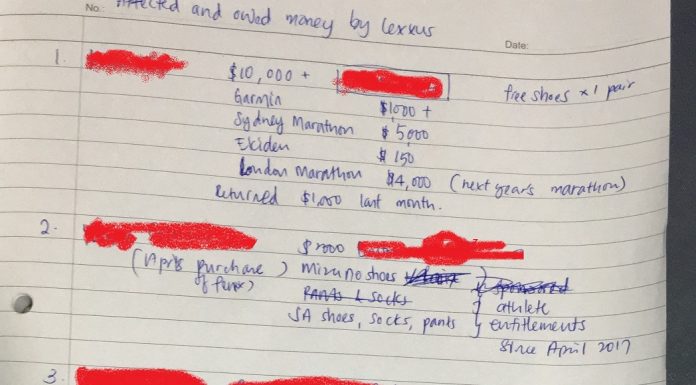 No.: Affected and owed money by Lexxus
Date:
1. $10,000 + free shoes x 1 pair
Garmin $1000 +
Sydney Marathon $5,000
Ekiden $150
London Marathon $4,000 (next year's marathon)
Returned $1,000 last month.
2. $
(April's purchase ) Mizuno shoes
of funex) PANTS & SOCKS athlete
SA shoes, socks, pants entitlements
since April 2017
3.